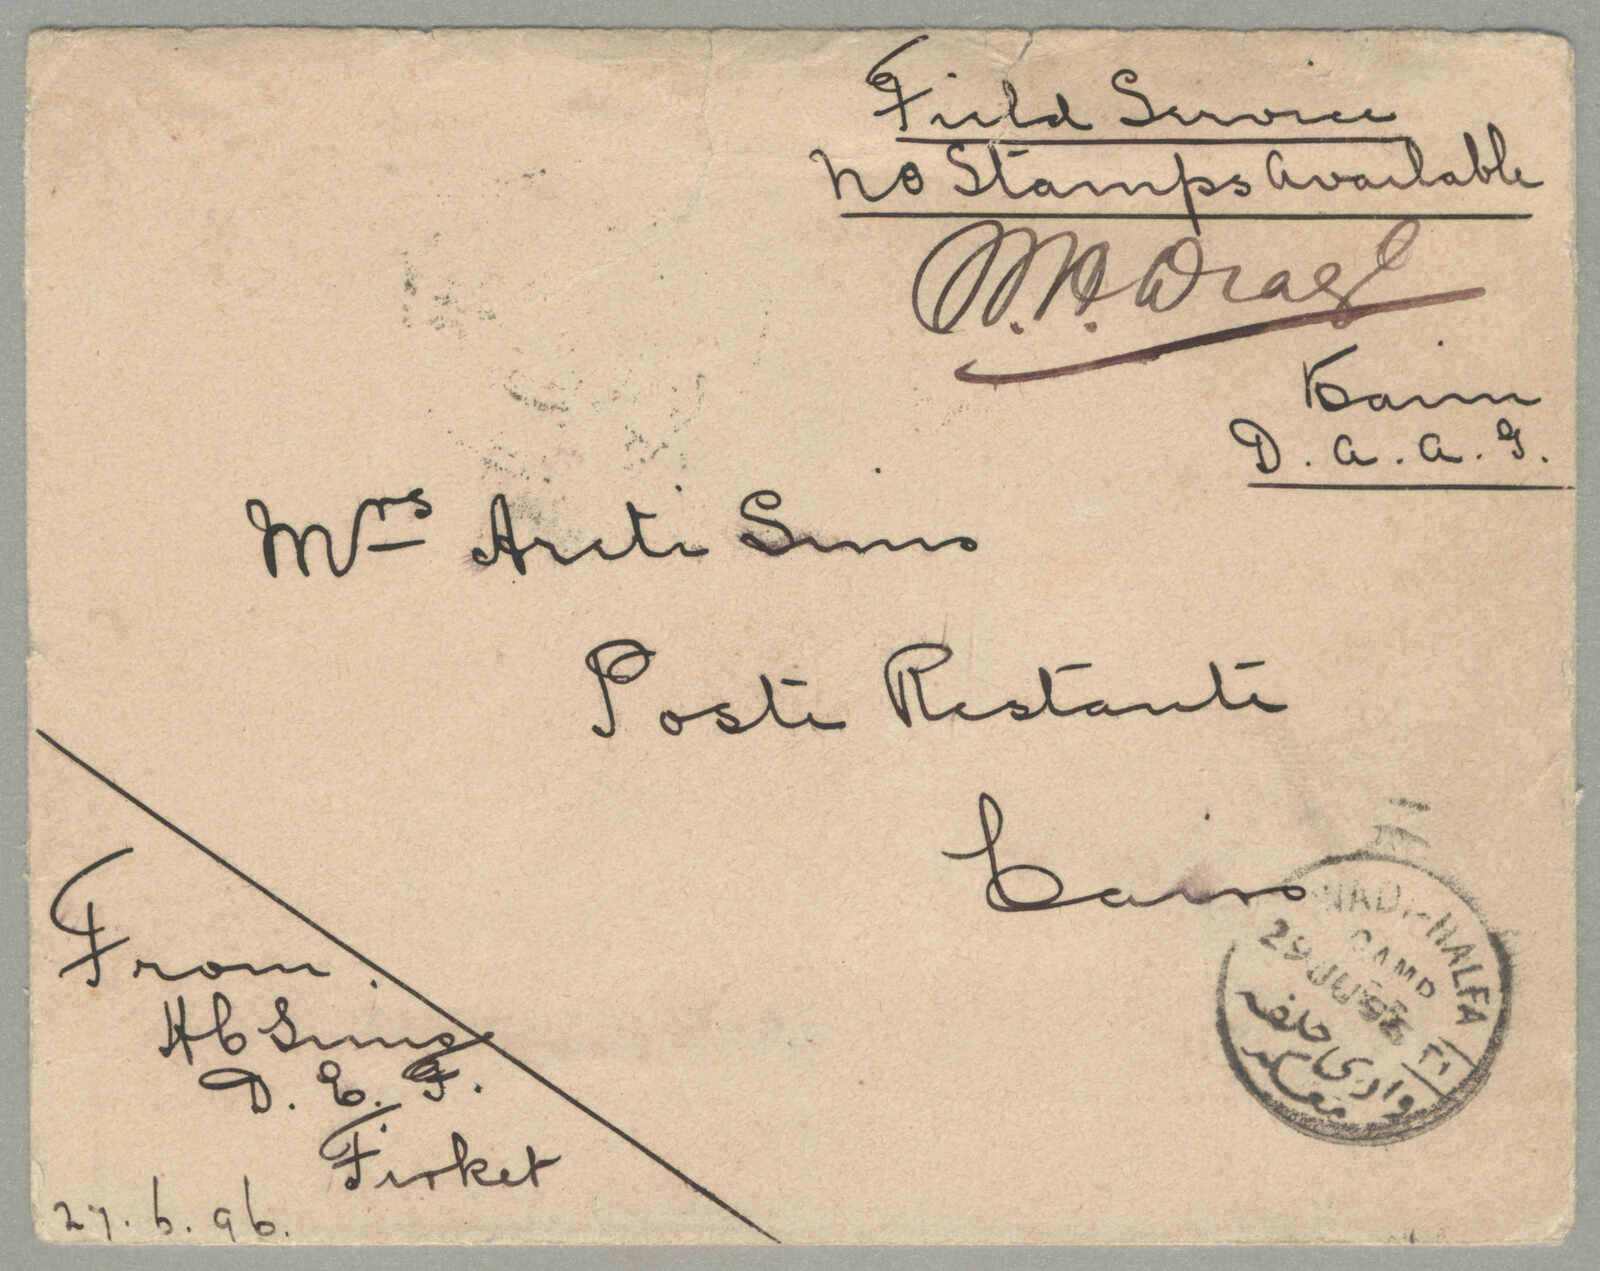 Field Service
No Stamps Available
W. H. Drage
Kaim
D. A. A. G.
Mrs Areti Sims
Poste Restante
Cairo
WADI-HALFA
CAMP
29 JU 96
وادى حلفه
معسكر
From.
H C Sims
D. E. F.
Firket
27. 6. 96.